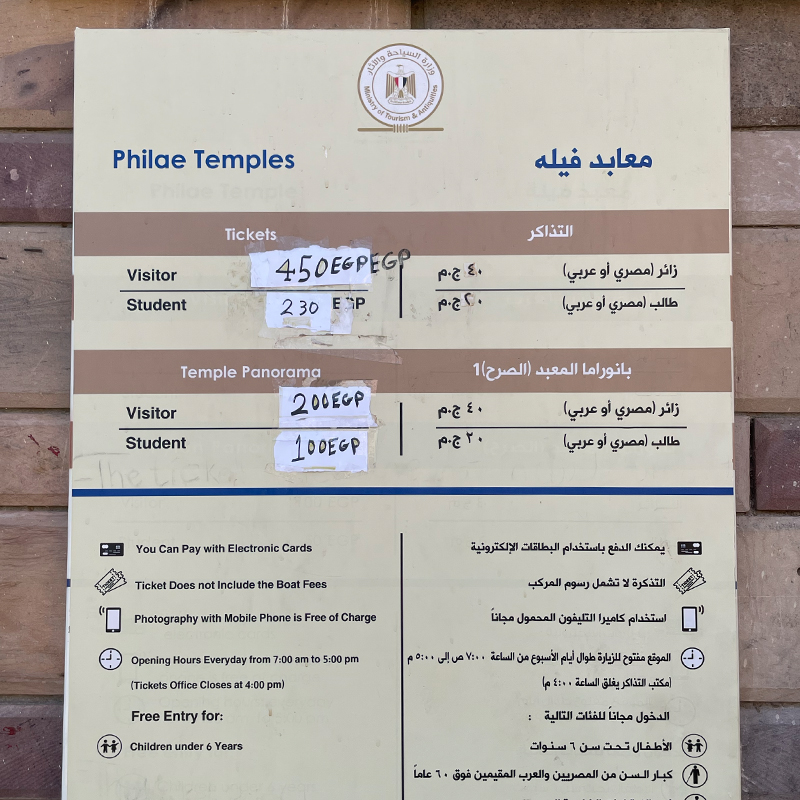 وزارة السياحة والآثار
Ministry of Tourism & Antiquities
Philae Temples
معابد فيله
Tickets
التذاكر
Visitor 450EGPEGP
٤٠ ج.م زائر (مصري أو عربي)
Student 230 EGP
٢٠ ج.م طالب (مصري أو عربي)
Temple Panorama
بانوراما المعبد (الصرح)1
Visitor 200EGP
٤٠ ج.م زائر (مصري أو عربي)
Student 100EGP
٢٠ ج.م طالب (مصري أو عربي)
You Can Pay with Electronic Cards
يمكنك الدفع باستخدام البطاقات الإلكترونية
Ticket Does not Include the Boat Fees
التذكرة لا تشمل رسوم المركب
Photography with Mobile Phone is Free of Charge
استخدام كاميرا التليفون المحمول مجاناً
Opening Hours Everyday from 7:00 am to 5:00 pm
الموقع مفتوح للزيارة طوال أيام الأسبوع من الساعة ٧:٠٠ ص إلى ٥:٠٠ م
(Tickets Office Closes at 4:00 pm)
(مكتب التذاكر يغلق الساعة ٤:٠٠ م)
Free Entry for:
الدخول مجاناً للفئات التالية :
Children under 6 Years
الأطفال تحت سن ٦ سنوات
كبار السن من المصريين والعرب المقيمين فوق ٦٠ عاماً